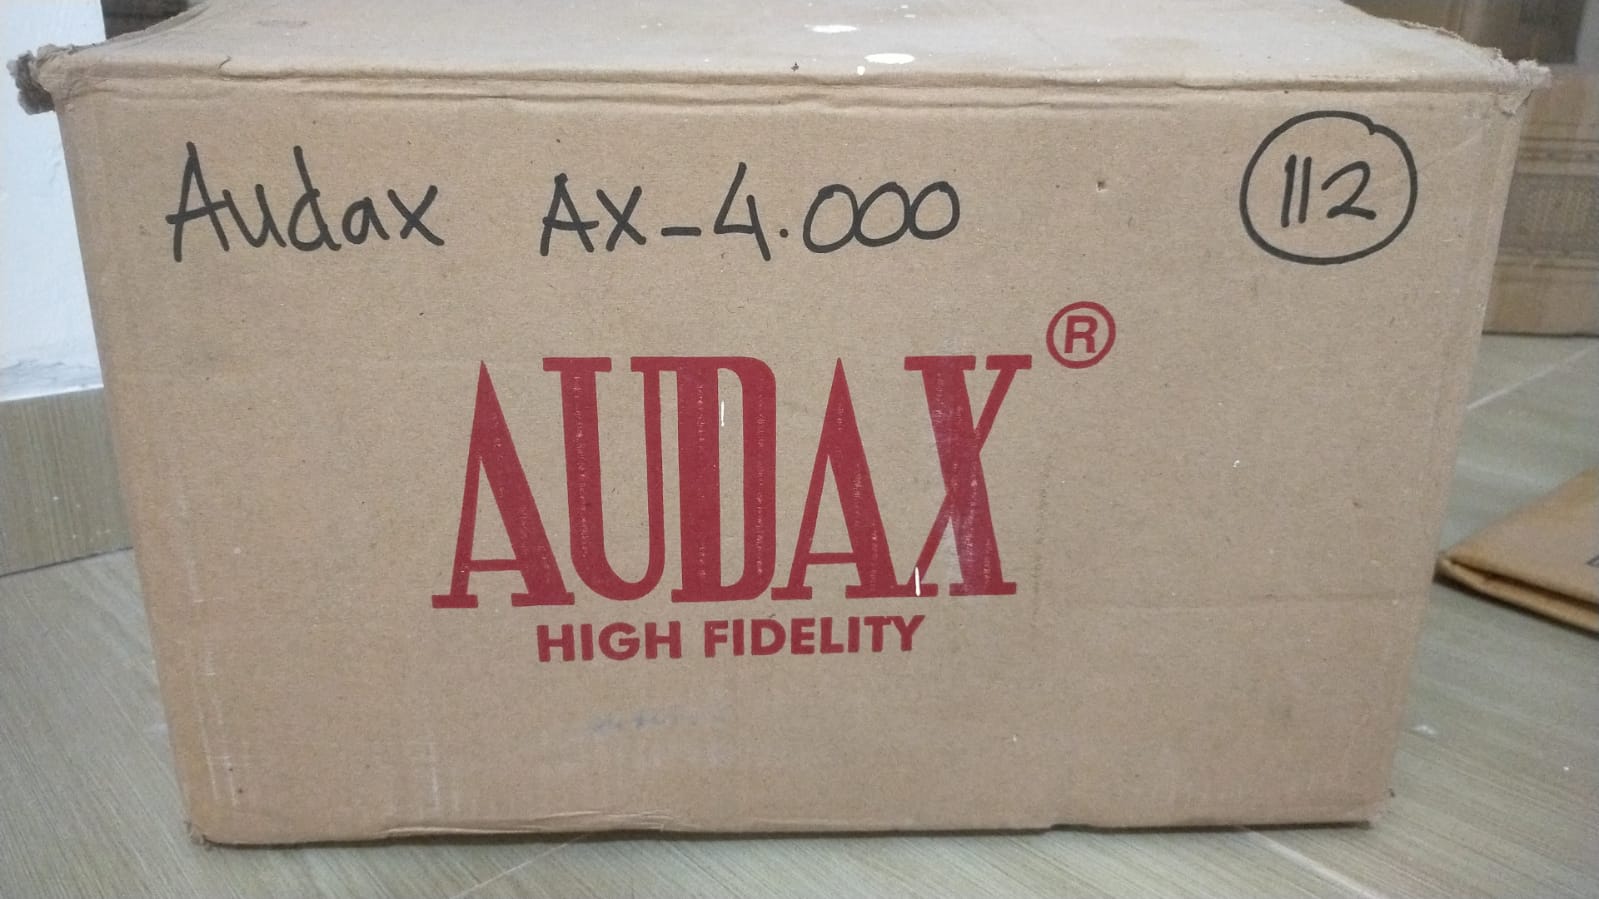 Audax AX-4.000 112
AUDAX®
HIGH FIDELITY